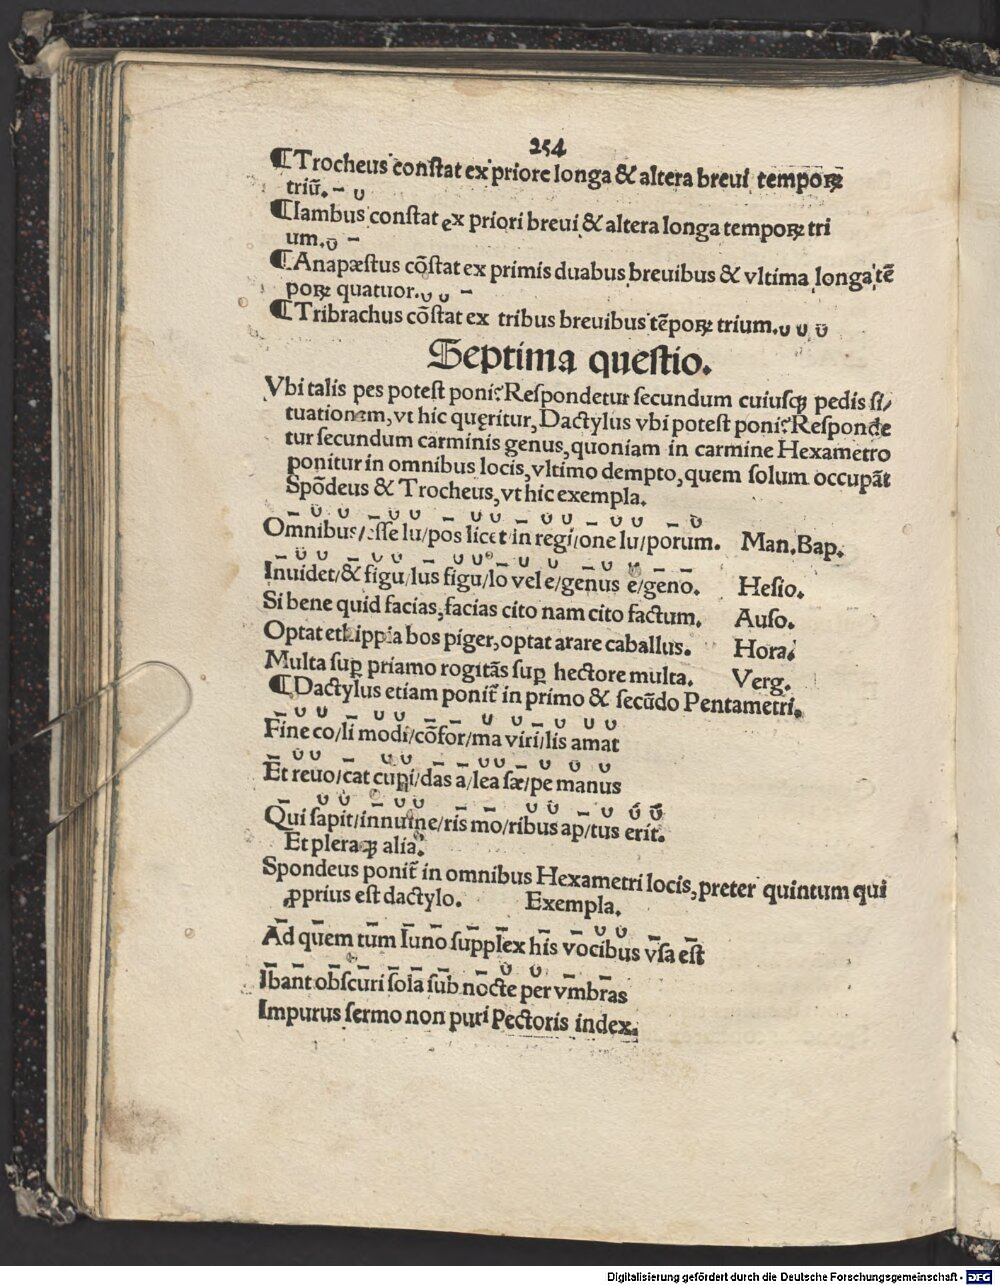 254
¶Trocheus conſtat ex priore longa & altera breui temporꝝ
triū. – ᴗ
¶Iambus conſtat ex priori breui & altera longa temporꝝ tri
um. ᴗ –
¶Anapæſtus cōſtat ex primis duabus breuibus & vltima longa tē
porꝝ quatuor. ᴗ ᴗ –
¶Tribrachus cōſtat ex tribus breuibus tēporꝝ trium. ᴗ ᴗ ᴗ
Septima queſtio.
Vbi talis pes poteſt poni? Reſpondetur ſecundum cuiuſcꝫ pedis ſi/
tuationem, vt hic quęritur, Dactylus vbi poteſt poni? Reſponde
tur ſecundum carminis genus, quoniam in carmine Hexametro
ponitur in omnibus locis, vltimo dempto, quem ſolum occupāt
Spōdeus & Trocheus, vt hic exempla.
Omnibus/eſſe lu/pos licet in regi/one lu/porum. Man. Bap.
Inuidet/& figu/lus figu/lo vel e/genus e/geno. Heſio.
Si bene quid facias, facias cito nam cito factum. Auſo.
Optat ethippia bos piger, optat arare caballus. Hora.
Multa ſuꝑ priamo rogitās ſuꝑ hectore multa. Verg.
¶Dactylus etiam ponit̄ in primo & ſecūdo Pentametri.
Fine co/li modi/cōfor/ma viri/lis amat
Et reuo/cat cupi/das a/lea ſæ/pe manus
Qui ſapit/innume/ris mo/ribus ap/tus erit.
Et pleraqꝫ alia.
Spondeus ponit̄ in omnibus Hexametri locis, preter quintum qui
ꝓprius eſt dactylo. Exempla.
Ad quem tum Iuno ſupplex his vocibus vſa eſt
Ibant obſcuri ſola ſub nocte per vmbras
Impurus ſermo non puri Pectoris index.
Digitalisierung gefördert durch die Deutsche Forschungsgemeinschaft - DFG